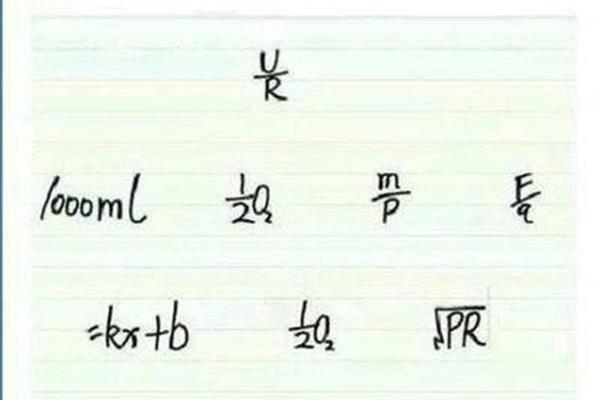 U/R
1000ml 1/2O₂ m/p F/q
=kx+b 1/2O₂ √PR